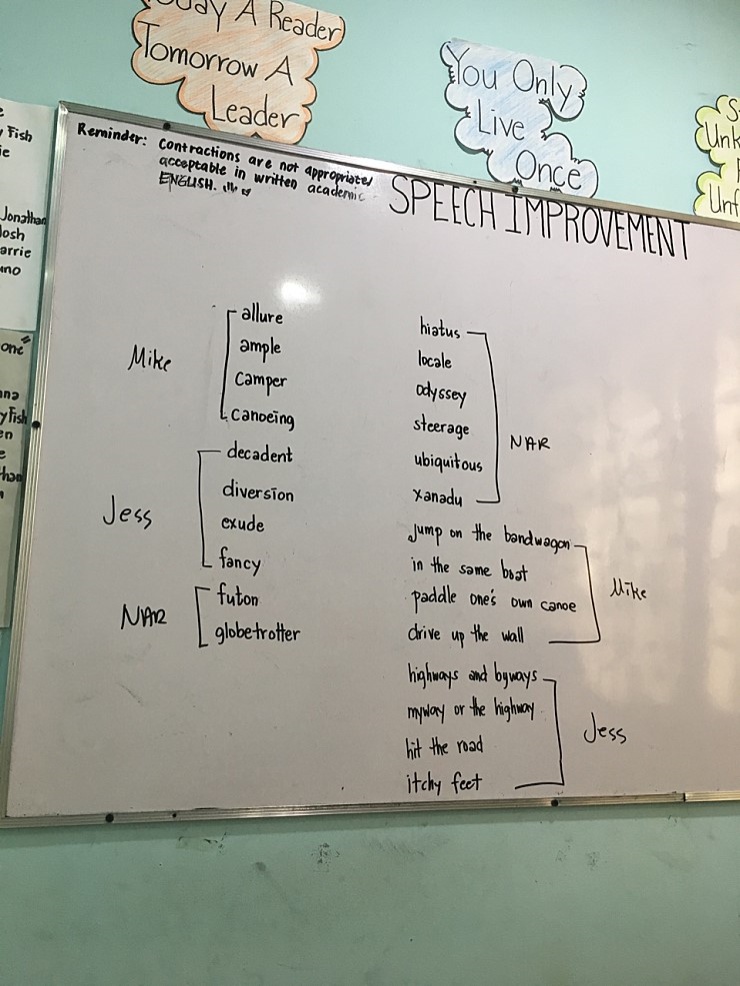 A Reader
Tomorrow A
Leader
You Only
Live
Once
Fish
Jonathan
Josh
Reminder: Contractions are not appropriate/
acceptable in written academic
ENGLISH.
SPEECH IMPROVEMENT
Mike
allure
ample
camper
canoeing
Jess
decadent
diversion
exude
fancy
NAR
futon
globetrotter
hiatus
locale
odyssey
steerage
ubiquitous
xanadu
NAR
jump on the bandwagon
in the same boat
paddle one's own canoe
drive up the wall
Mike
highways and byways
myway or the highway
hit the road
itchy feet
Jess